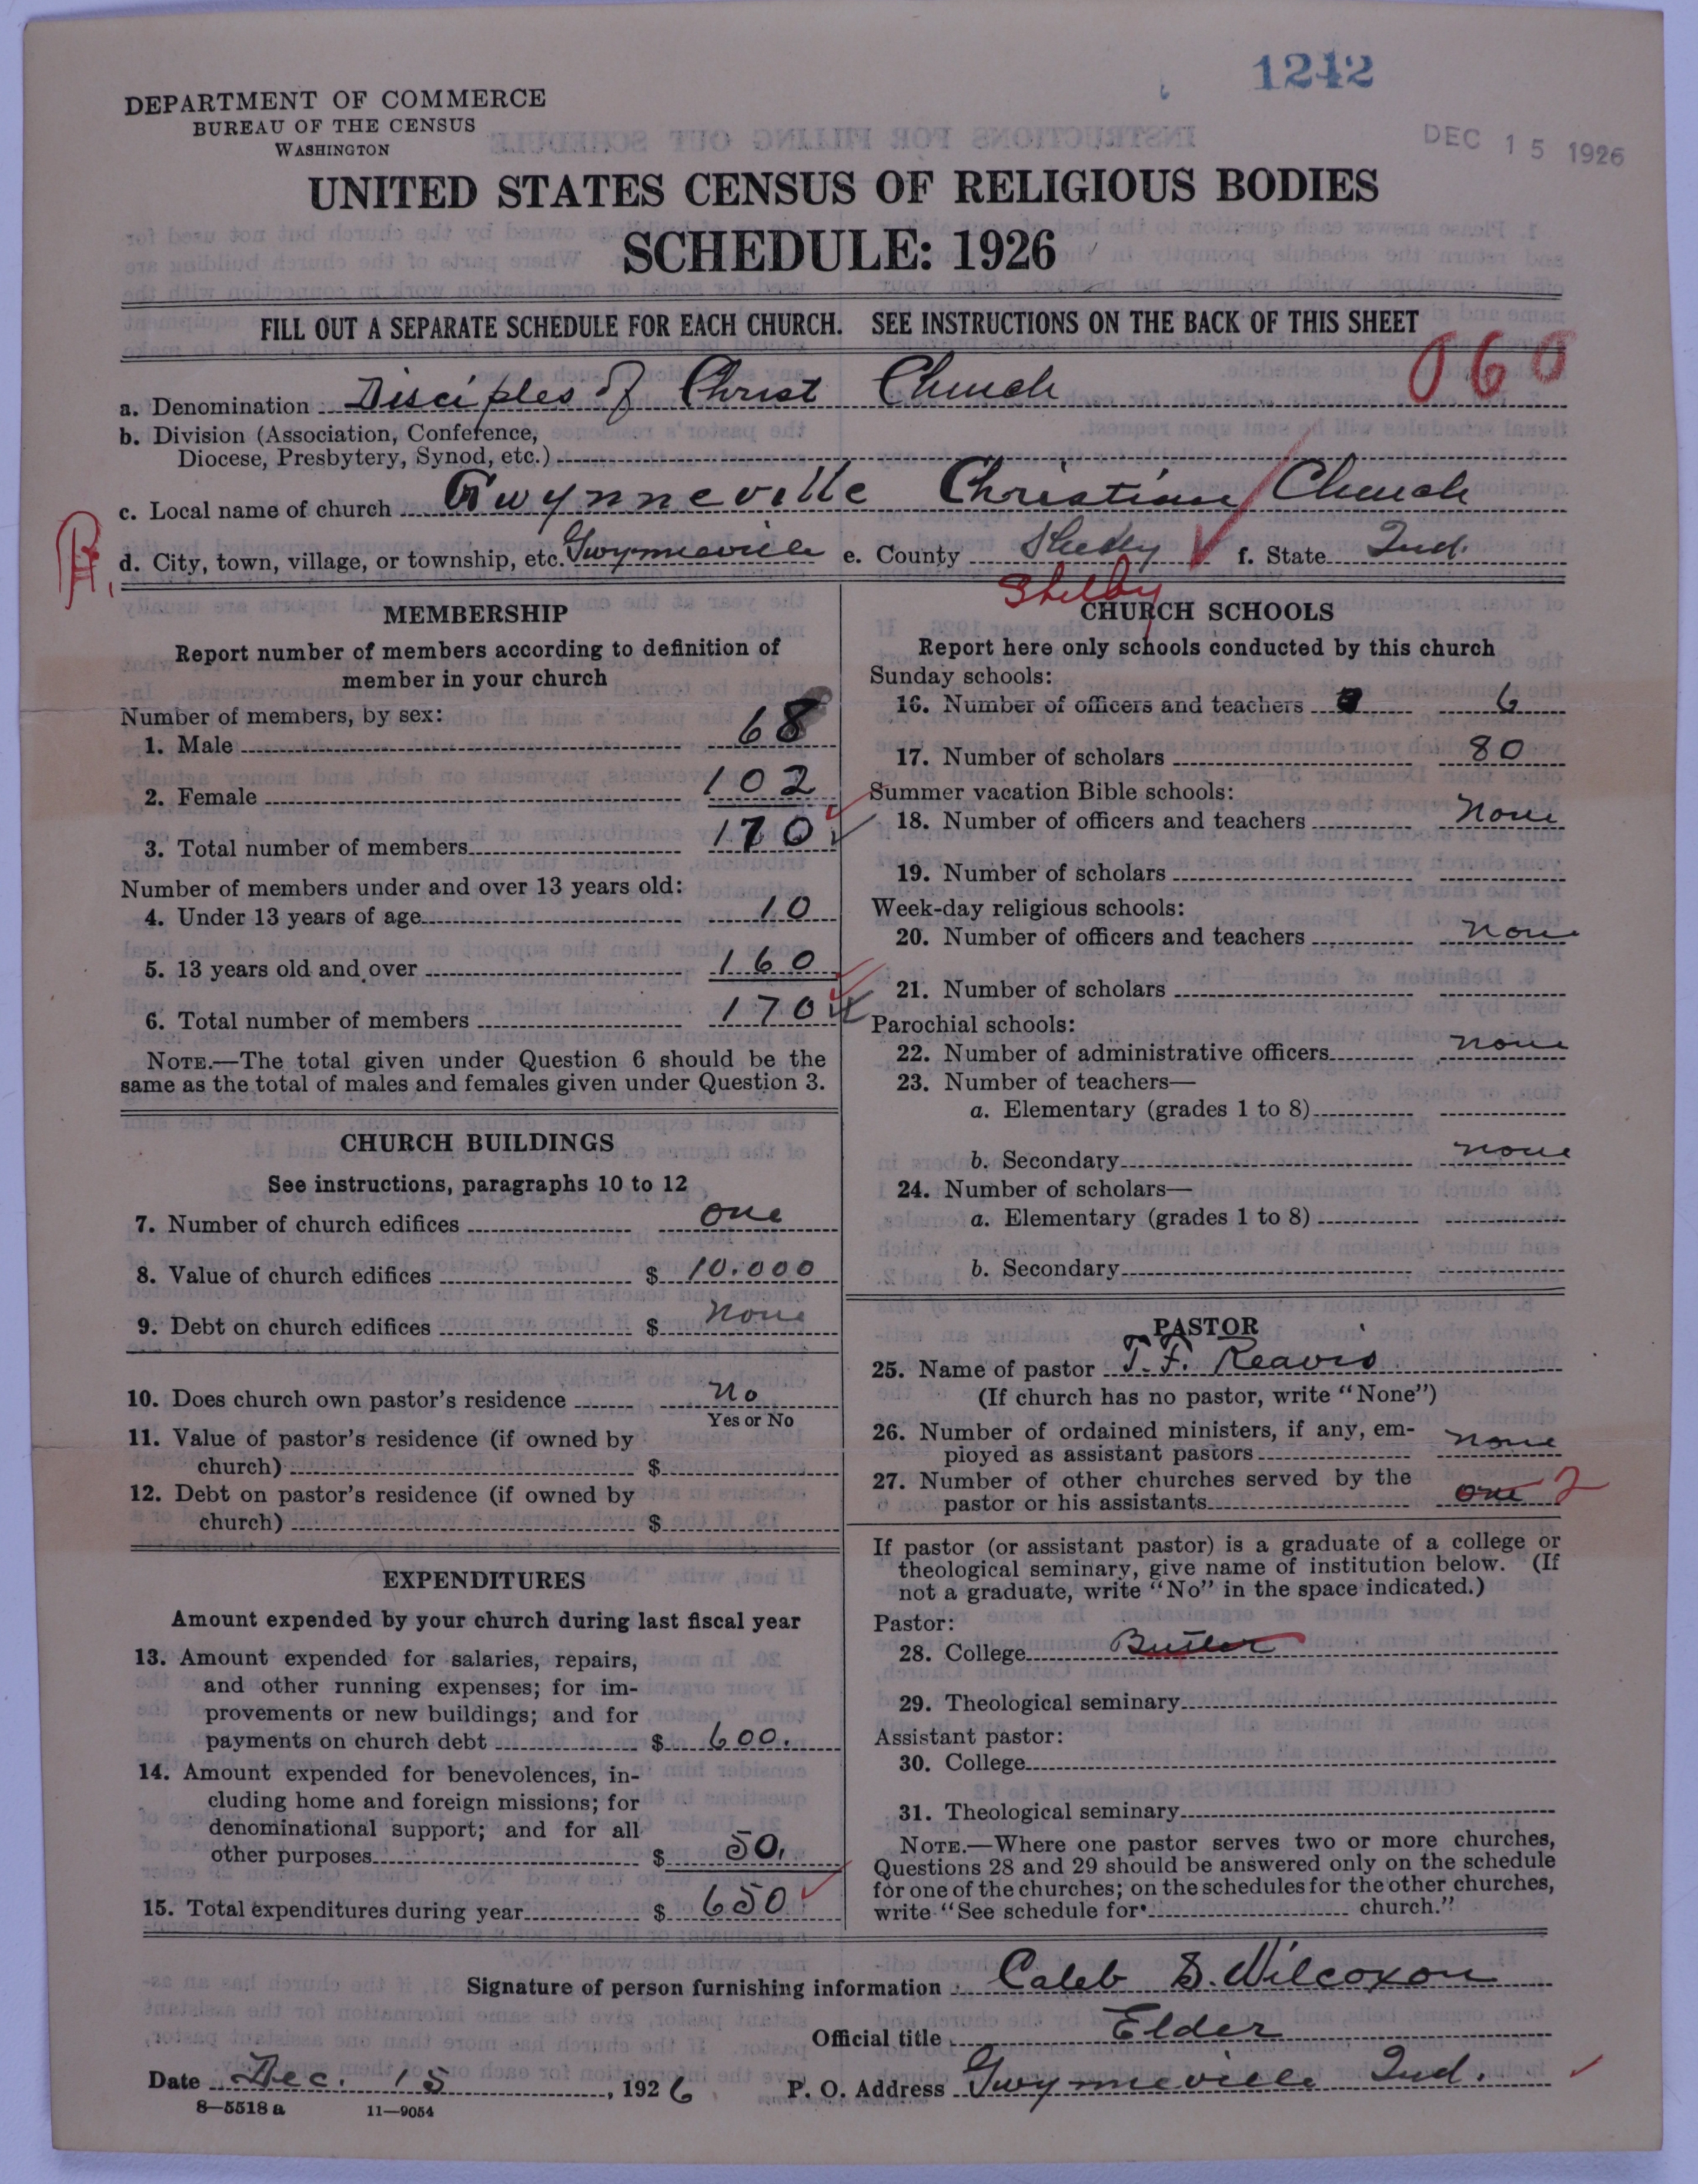 1242
DEC 15 1926
DEPARTMENT OF COMMERCE
BUREAU OF THE CENSUS
WASHINGTON
UNITED STATES CENSUS OF RELIGIOUS BODIES
SCHEDULE: 1926
FILL OUT A SEPARATE SCHEDULE FOR EACH CHURCH. SEE INSTRUCTIONS ON THE BACK OF THIS SHEET
060
a. Denomination Disciples of Christ Church
b. Division (Association, Conference,
Diocese, Presbytery, Synod, etc.)
c. Local name of church Gwynneville Christian Church
d. City, town, village, or township, etc. Gwynneville e. County Shelby f. State Ind.
Shelby
MEMBERSHIP
Report number of members according to definition of
member in your church
Number of members, by sex:
1. Male 68
2. Female 102
3. Total number of members 170
Number of members under and over 13 years old:
4. Under 13 years of age 10
5. 13 years old and over 160
6. Total number of members 170
NOTE.—The total given under Question 6 should be the
same as the total of males and females given under Question 3.
CHURCH BUILDINGS
See instructions, paragraphs 10 to 12
7. Number of church edifices one
8. Value of church edifices $ 10.000
9. Debt on church edifices $ none
10. Does church own pastor's residence no
Yes or No
11. Value of pastor's residence (if owned by
church) $
12. Debt on pastor's residence (if owned by
church) $
EXPENDITURES
Amount expended by your church during last fiscal year
13. Amount expended for salaries, repairs,
and other running expenses; for im-
provements or new buildings; and for
payments on church debt $ 600.
14. Amount expended for benevolences, in-
cluding home and foreign missions; for
denominational support; and for all
other purposes $ 50.
15. Total expenditures during year $ 650
CHURCH SCHOOLS
Report here only schools conducted by this church
Sunday schools:
16. Number of officers and teachers 6
17. Number of scholars 80
Summer vacation Bible schools:
18. Number of officers and teachers None
19. Number of scholars
Week-day religious schools:
20. Number of officers and teachers none
21. Number of scholars
Parochial schools:
22. Number of administrative officers none
23. Number of teachers—
a. Elementary (grades 1 to 8)
b. Secondary none
24. Number of scholars—
a. Elementary (grades 1 to 8)
b. Secondary
PASTOR
25. Name of pastor T. F. Reavis
(If church has no pastor, write "None")
26. Number of ordained ministers, if any, em-
ployed as assistant pastors none
27. Number of other churches served by the
pastor or his assistants one 2
If pastor (or assistant pastor) is a graduate of a college or
theological seminary, give name of institution below. (If
not a graduate, write "No" in the space indicated.)
Pastor:
28. College Butler
29. Theological seminary
Assistant pastor:
30. College
31. Theological seminary
NOTE.—Where one pastor serves two or more churches,
Questions 28 and 29 should be answered only on the schedule
for one of the churches; on the schedules for the other churches,
write "See schedule for church."
Signature of person furnishing information Caleb S. Wilcoxon
Official title Elder
Date Dec. 15, 1926 P. O. Address Gwynneville Ind.
8—5518 a 11—9054